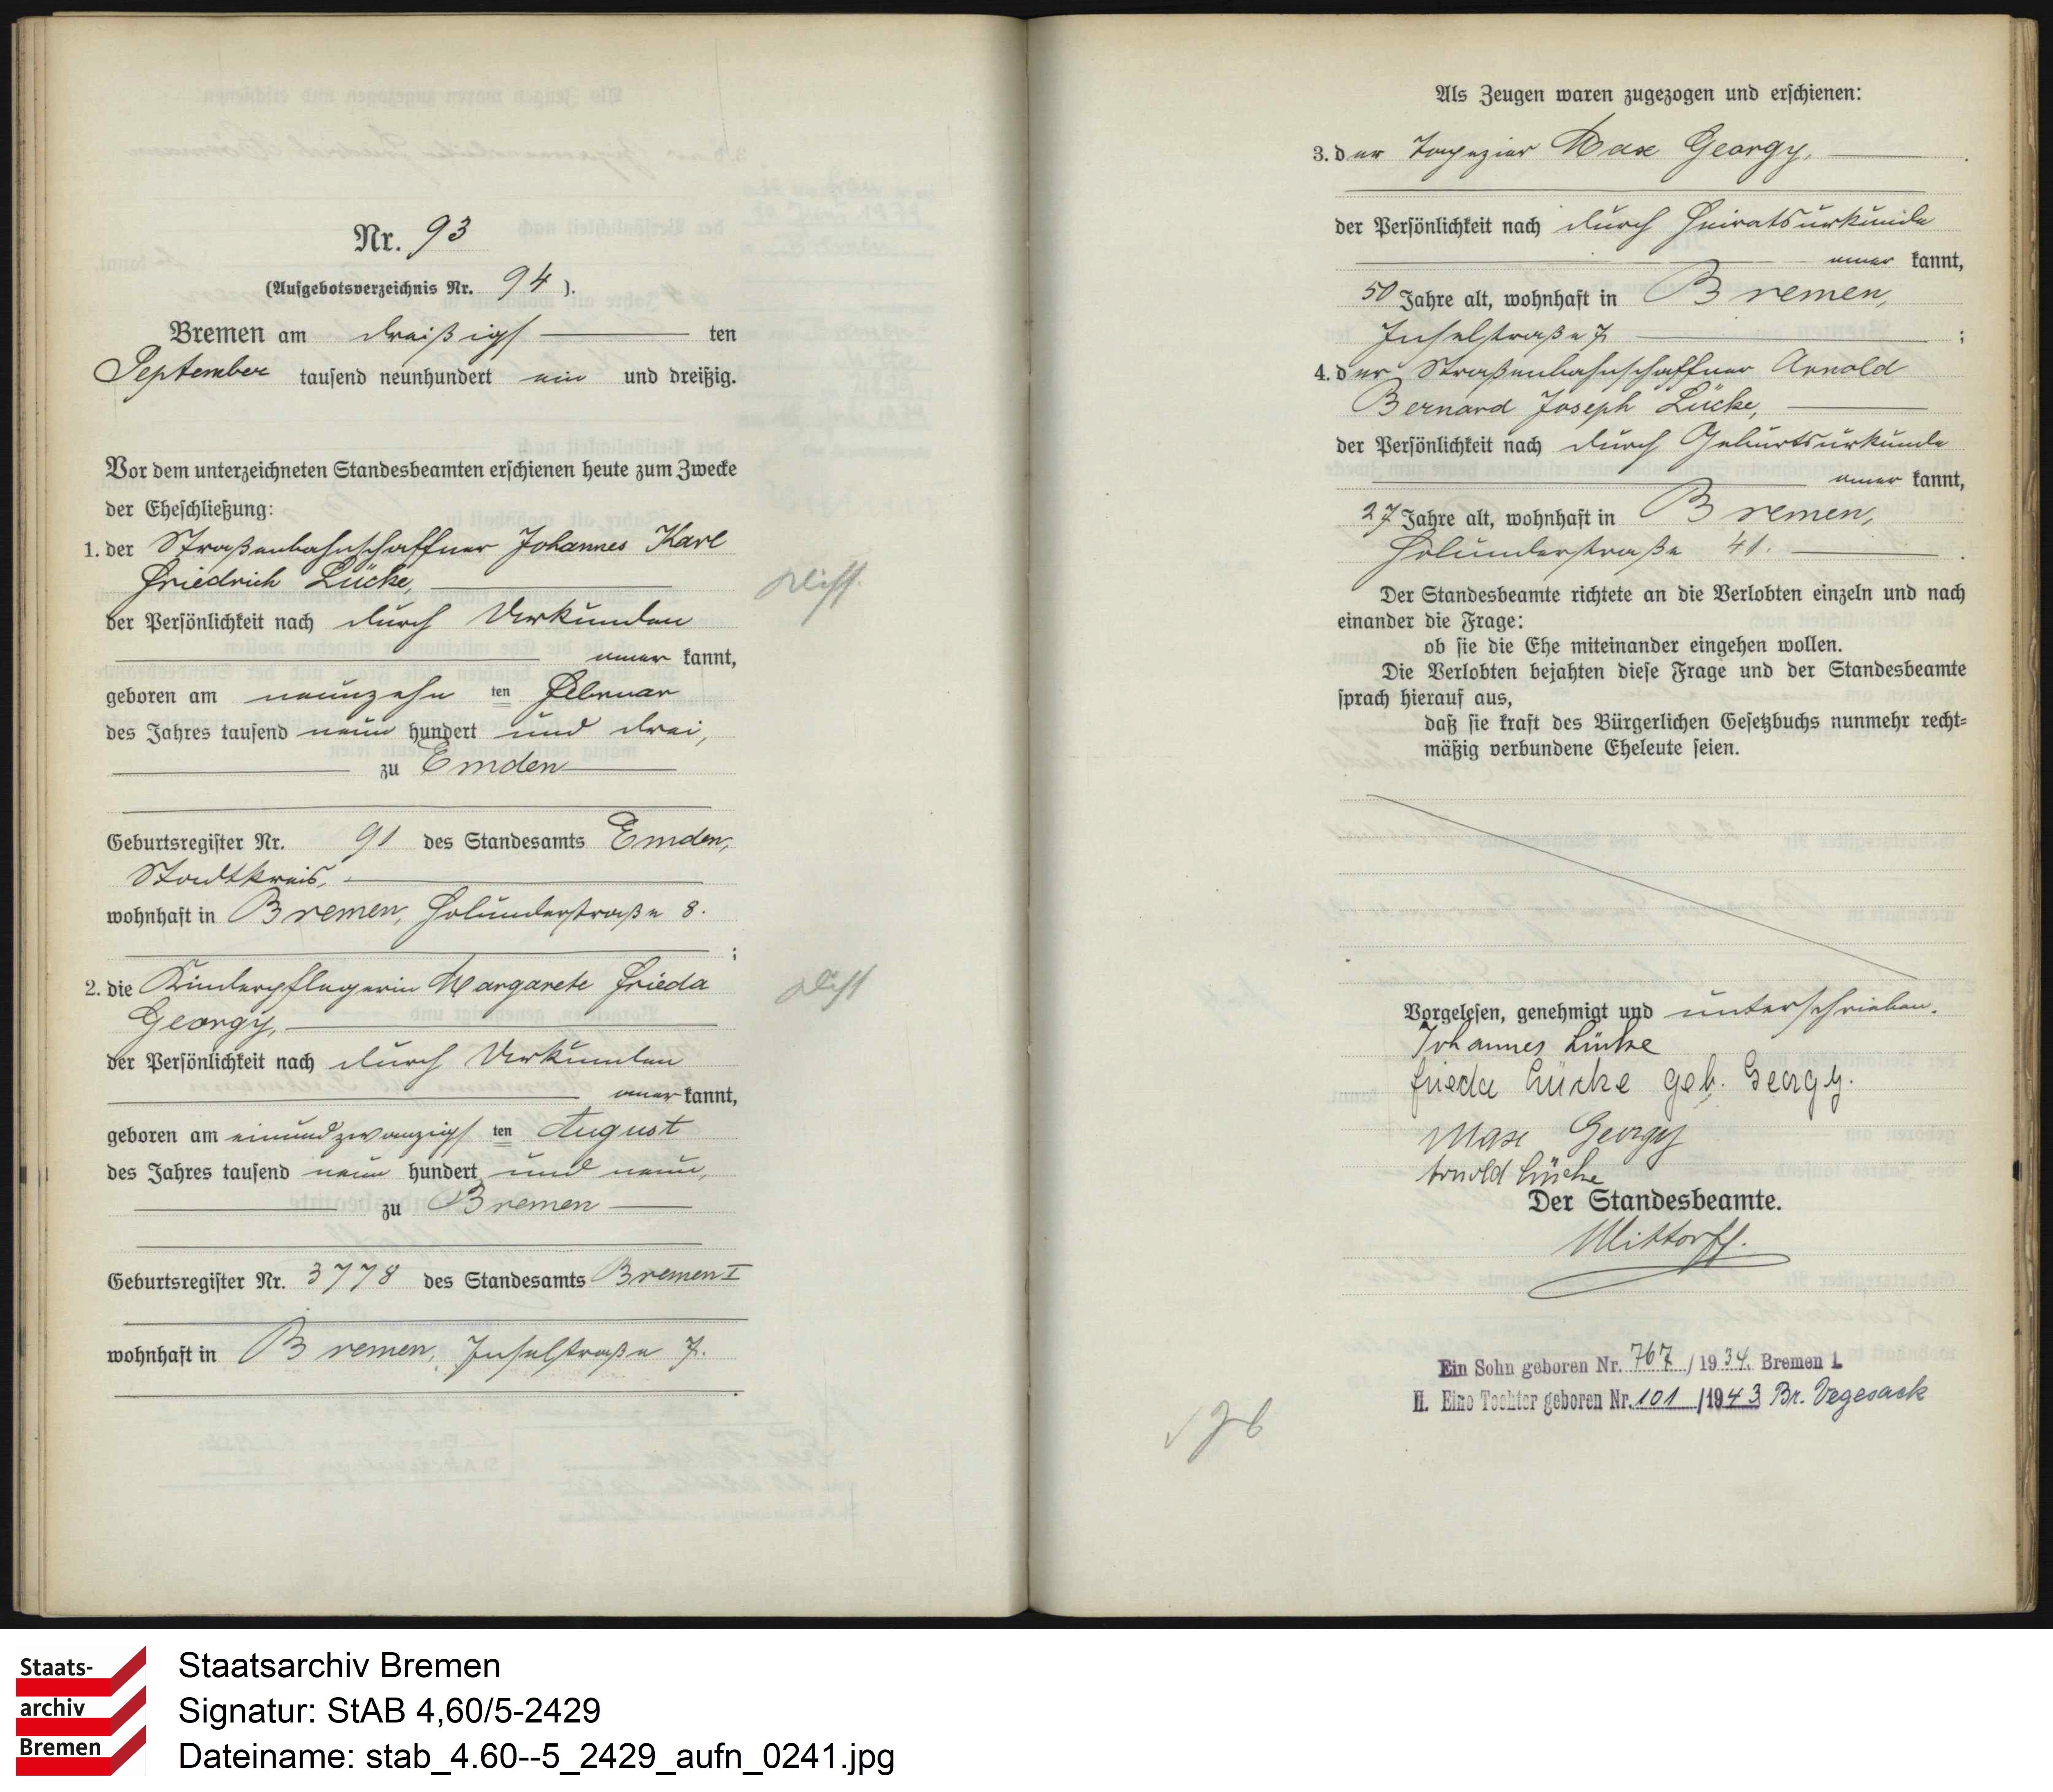 Nr. 93
(Aufgebotsverzeichnis Nr. 94).
Bremen am dreißigsten
September tausend neunhundert ein und dreißig.
Vor dem unterzeichneten Standesbeamten erschienen heute zum Zwecke
der Eheschließung:
1. der Straßenbahnschaffner Johannes Karl
Friedrich Lücke,
der Persönlichkeit nach durch Urkunden
anerkannt,
geboren am neunzehnten Februar
des Jahres tausend neunhundert und drei,
zu Emden
Geburtsregister Nr. 91 des Standesamts Emden,
Stadtkreis,
wohnhaft in Bremen, Holunderstraße 8.
;
2. die Kinderpflegerin Margarete Frieda
Georgy,
der Persönlichkeit nach durch Urkunden
anerkannt,
geboren am einundzwanzigsten August
des Jahres tausend neunhundert und neun,
zu Bremen
Geburtsregister Nr. 3778 des Standesamts Bremen I
wohnhaft in Bremen, Inselstraße 7.
Als Zeugen waren zugezogen und erschienen:
3. der Tapezier Max Georgy,
der Persönlichkeit nach durch Heiratsurkunde
anerkannt,
50 Jahre alt, wohnhaft in Bremen,
Inselstraße 7 ;
4. der Straßenbahnschaffner Arnold
Bernard Joseph Lücke,
der Persönlichkeit nach durch Geburtsurkunde
anerkannt,
27 Jahre alt, wohnhaft in Bremen,
Holunderstraße 41.
Der Standesbeamte richtete an die Verlobten einzeln und nach
einander die Frage:
ob sie die Ehe miteinander eingehen wollen.
Die Verlobten bejahten diese Frage und der Standesbeamte
sprach hierauf aus,
daß sie kraft des Bürgerlichen Gesetzbuchs nunmehr recht-
mäßig verbundene Eheleute seien.
Vorgelesen, genehmigt und unterschrieben.
Johannes Lücke
Frieda Lücke geb. Georgy.
Max Georgy
Arnold Lücke
Der Standesbeamte.
Mittorff.
Ein Sohn geboren Nr. 767/1934. Bremen 1.
II. Eine Tochter geboren Nr. 101/1943 Br. Vegesack
Staats-
archiv
Bremen
Staatsarchiv Bremen
Signatur: StAB 4,60/5-2429
Dateiname: stab_4.60--5_2429_aufn_0241.jpg